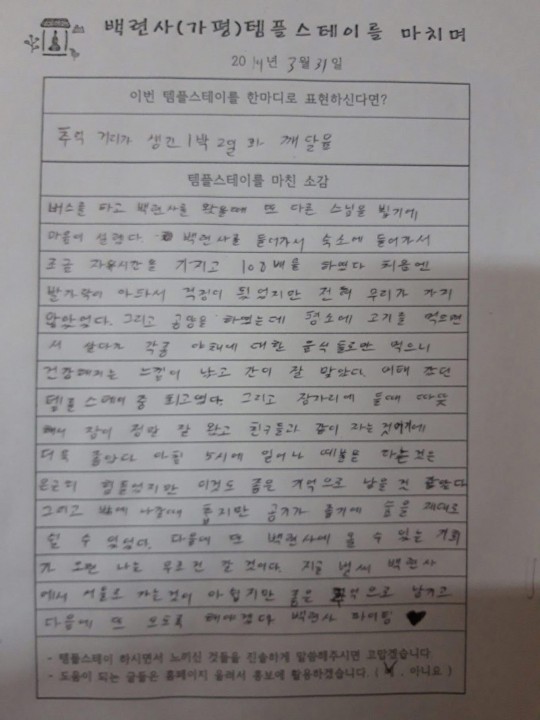 백련사(가평)템플스테이를 마치며
2014년 3월 31일
이번 템플스테이를 한마디로 표현하신다면?
추억 거리가 생긴 1박 2일 과 깨달음
템플스테이를 마친 소감
버스를 타고 백련사를 왔을때 또 다른 스님을 뵙기에
마음이 설렜다. 백련사를 들어가서 숙소에 들어가서
조금 자유시간을 가지고 108배를 하였다 처음엔
발가락이 아파서 걱정이 됬었지만 전혀 무리가 가지
않았었다. 그리고 공양을 하였는데 평소에 고기를 먹으면
서 살다가 각종 야채에 대한 음식 들로만 먹으니
건강해지는 느낌이 났고 간이 잘 맞았다. 여태 갔던
템플스테이 중 최고였다. 그리고 잠자리에 들때 따뜻
해서 잠이 정말 잘 왔고 친구들과 같이 자는 것이기에
더욱 좋았다 아침 5시에 일어나 예불을 하는것은
은근히 힘들었지만 이것도 좋은 기억으로 남을것 같았다
그리고 밖에 나갈때 춥지만 공기가 좋기에 숨을 제대로
쉴 수 있었다. 다음에 또 백련사에 올 수 있는 기회
가 오면 나는 무조건 갈 것이다. 지금 벌써 백련사
에서 서울로 가는것이 아쉽지만 좋은 추억으로 남기고
다음에 또 오도록 해야겠다 백련사 파이팅 ♥
- 템플스테이 하시면서 느끼신 것들을 진솔하게 말씀해주시면 고맙겠습니다
- 도움이 되는 글들은 홈페이지 올려서 홍보에 활용하겠습니다. ( , 아니요 )